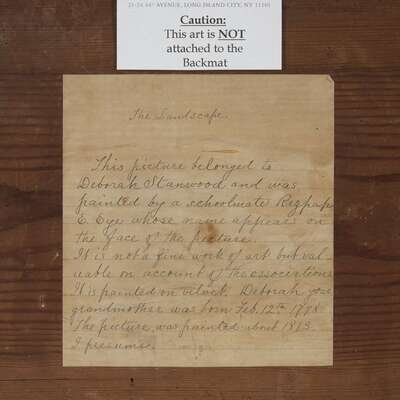 21-24 44th AVENUE, LONG ISLAND CITY, NY 11101
Caution:
This art is NOT
attached to the
Backmat
The Landscape.
This picture belonged to
Deborah Stanwood and was
painted by a schoolmate
E. Eye whose name appears on
the face of the picture.
It is not a fine work of art but val
uable on account of the associations
It is painted on velvet. Deborah your
grandmother was born Feb. 12th 1798
The picture was painted about 1813
I presume.